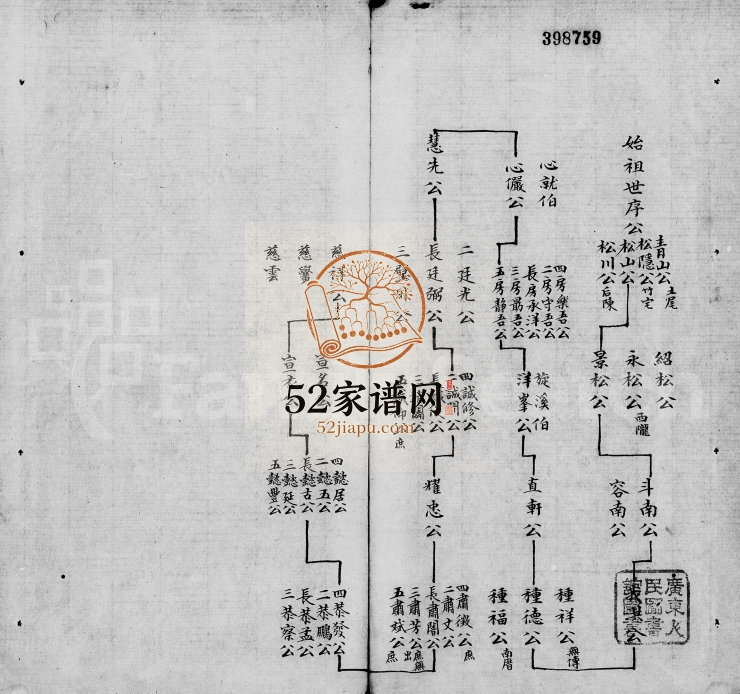 398759
始祖世序公
青山公
松隱公
松山公
松川公
紹松公
永松公 西隴
景松公
斗南公
容南公
心就伯
心儼公
四房樂吾公
二房守吾公
長房承洋公
三房最吾公
五房靜吾公
旋溪伯
洋峯公
直軒公
種祥公
種德公
種福公 南厝
慧先公
二廷光公
長廷弼公
四誠修公
耀忠公
四肅徵公 庶
二肅文公
長肅閣公
三肅芳公
五肅斌公 庶
慈雲
四懿居公
二懿五公
長懿古公
三懿延公
五懿豐公
四恭發公
二恭鵬公
長恭孟公
三恭察公
52家谱网
52jiapu.com